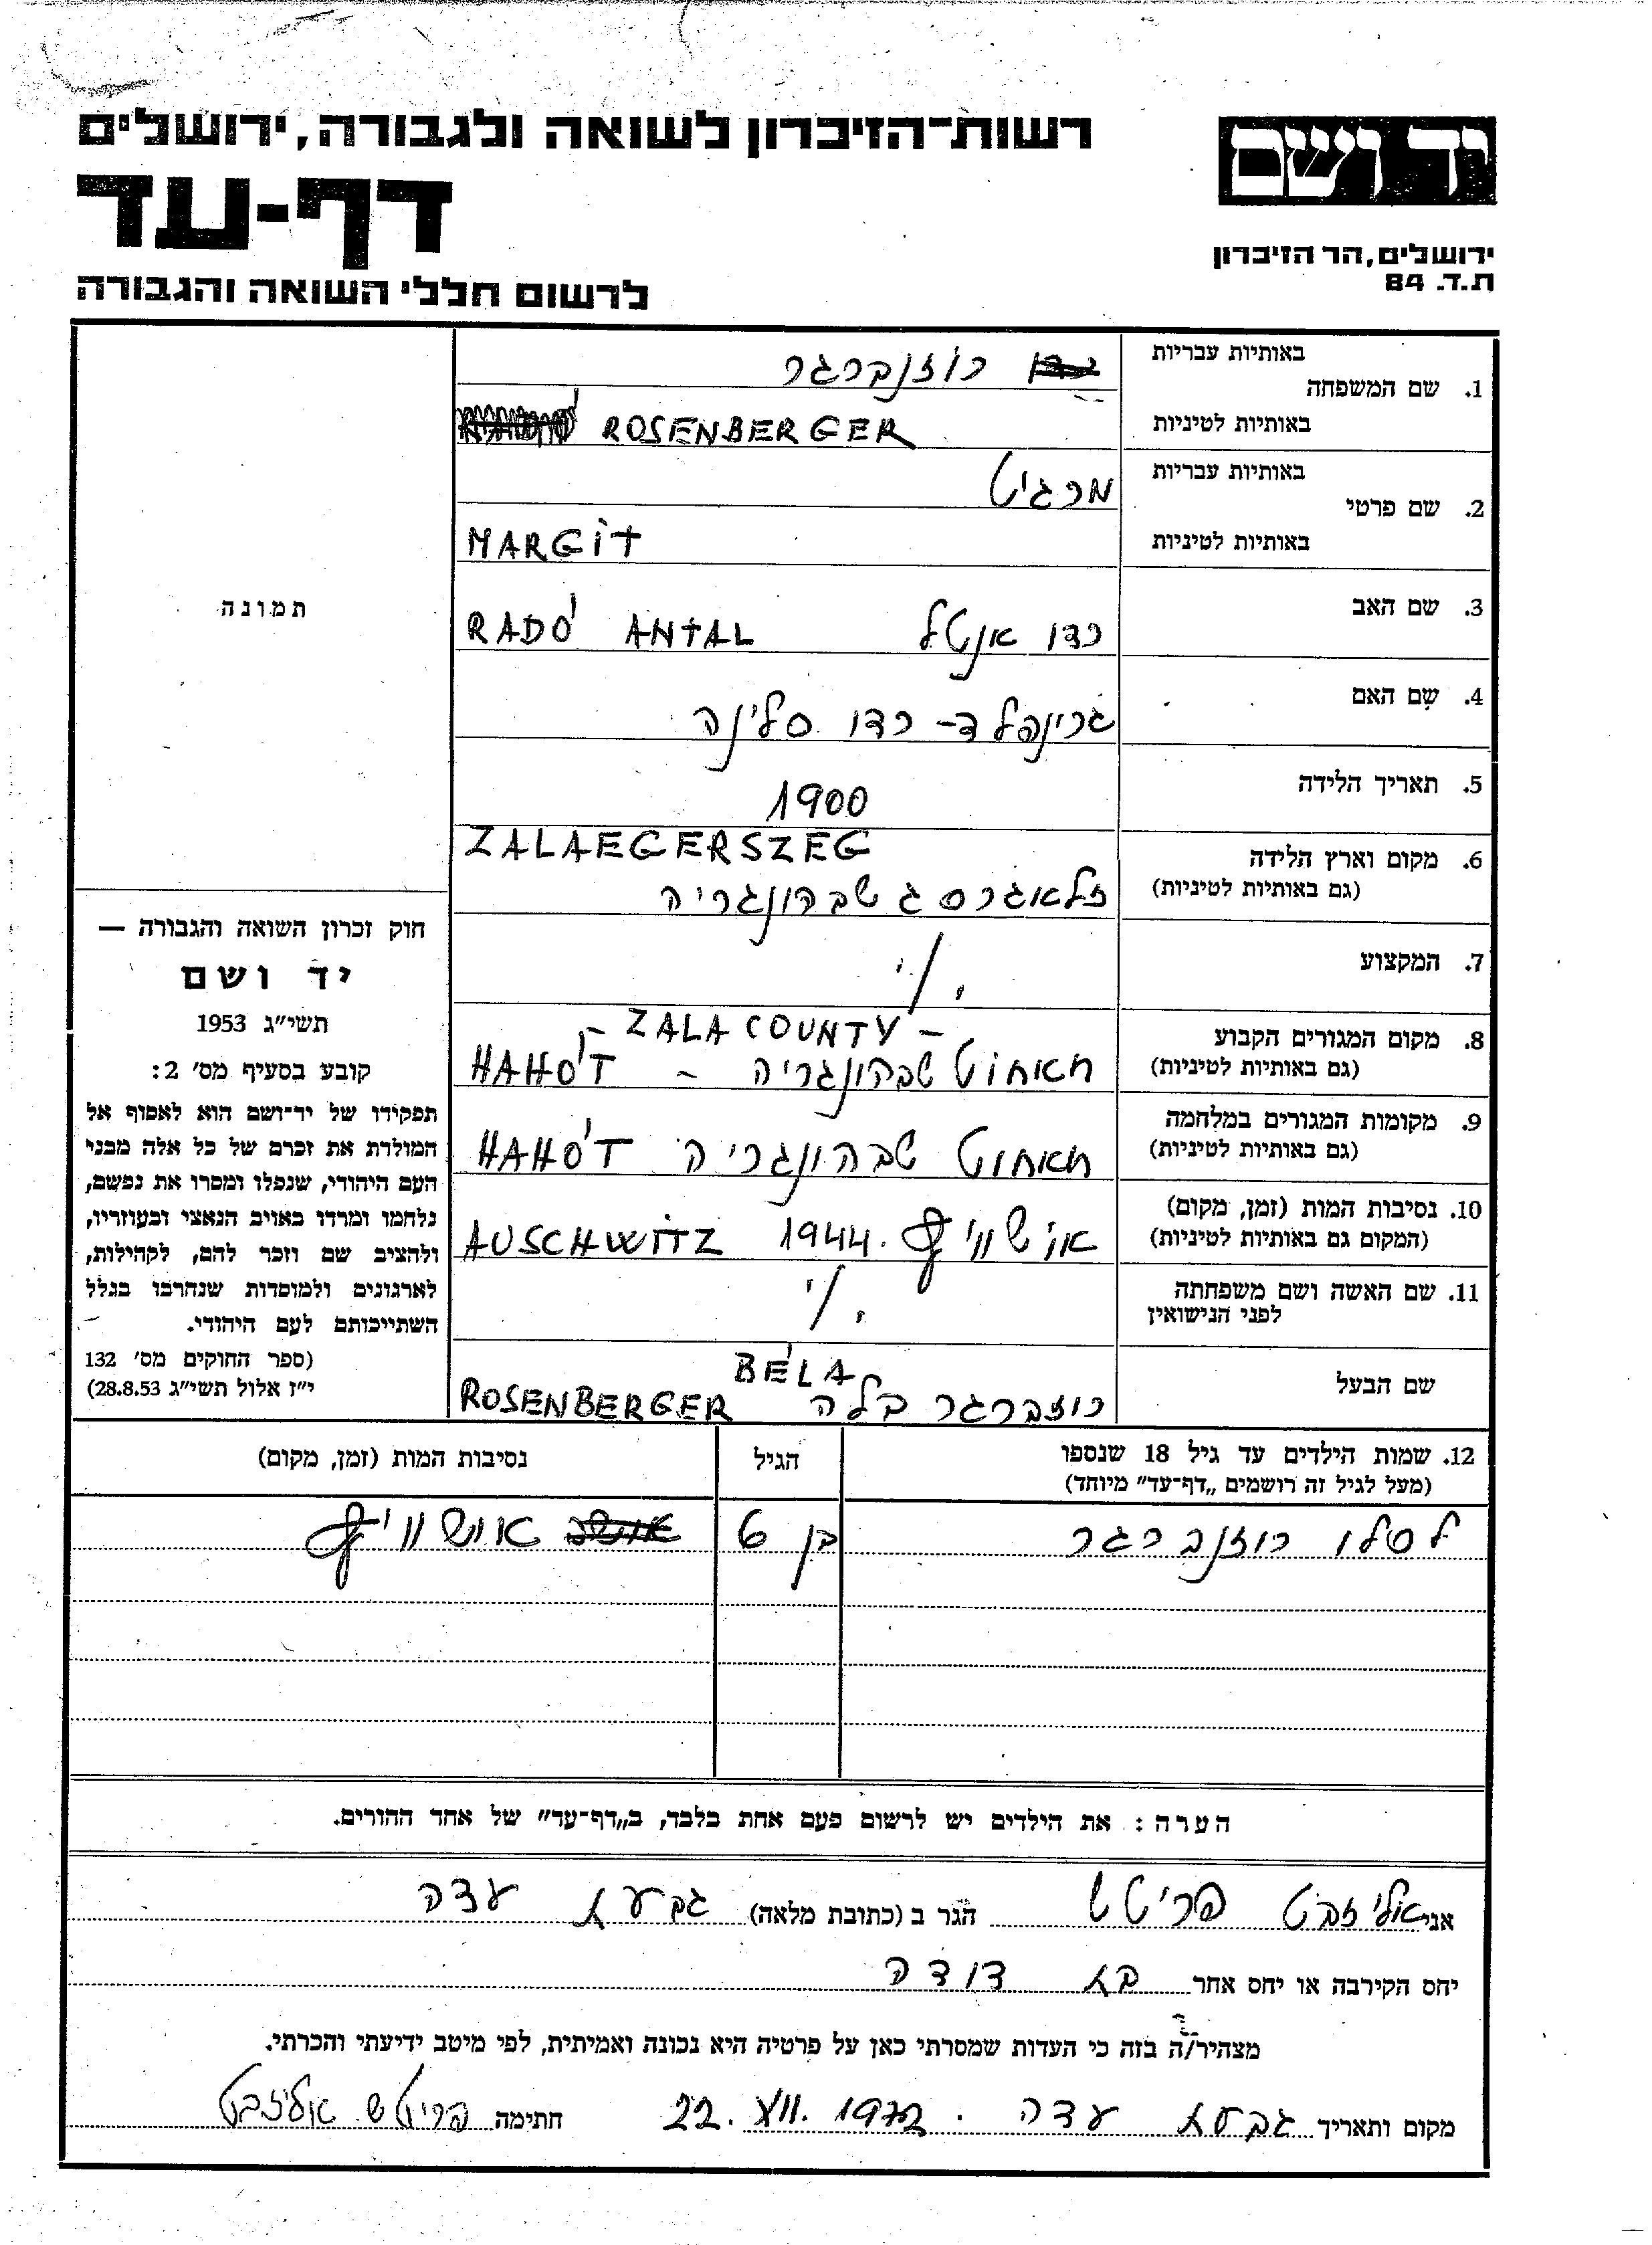 רשות-הזיכרון לשואה ולגבורה, ירושלים
יד ושם
דף-עד
ירושלים, הר הזיכרון
ת.ד. 84
לרשום חללי השואה והגבורה
באותיות עבריות
1. שם המשפחה
רוזנברגר
באותיות לטיניות
ROSENBERGER
באותיות עבריות
2. שם פרטי
מרגיט
באותיות לטיניות
MARGIT
3. שם האב
רדו אנטל RADÓ ANTAL
4. שם האם
גרינפלד - רדו סלינה
5. תאריך הלידה
1900
6. מקום וארץ הלידה
(גם באותיות לטיניות)
ZALAEGERSZEG
זלאגרסג שבהונגריה
7. המקצוע
./.
8. מקום המגורים הקבוע
(גם באותיות לטיניות)
- ZALA COUNTY -
האחוט שבהונגריה - HAHÓT
9. מקומות המגורים במלחמה
(גם באותיות לטיניות)
האחוט שבהונגריה HAHÓT
10. נסיבות המות (זמן, מקום)
(המקום גם באותיות לטיניות)
אושוויץ 1944. AUSCHWITZ
11. שם האשה ושם משפחתה
לפני הנישואין
./.
שם הבעל
BÉLA
רוזברגר בלה ROSENBERGER
תמונה
חוק זכרון השואה והגבורה —
יד ושם
תשי״ג 1953
קובע בסעיף מס׳ 2:
תפקידו של יד-ושם הוא לאסוף אל
המולדת את זכרם של כל אלה מבני
העם היהודי, שנפלו ומסרו את נפשם,
נלחמו ומרדו באויב הנאצי ובעוזריו,
ולהציב שם וזכר להם, לקהילות,
לארגונים ולמוסדות שנחרבו בגלל
השתייכותם לעם היהודי.
(ספר החוקים מס׳ 132
י״ז אלול תשי״ג 28.8.53)
12. שמות הילדים עד גיל 18 שנספו
(מעל לגיל זה רושמים „דף-עד״ מיוחד)
הגיל
נסיבות המות (זמן, מקום)
לסלו רוזנברגר בן 6 אושוויץ
הערה: את הילדים יש לרשום פעם אחת בלבד, ב„דף-עד״ של אחד ההורים.
אני אליזבט פריטש הגר ב (כתובת מלאה) גבעת עדה
יחס הקירבה או יחס אחר בת דודה
מצהיר/ה בזה כי העדות שמסרתי כאן על פרטיה היא נכונה ואמיתית, לפי מיטב ידיעתי והכרתי.
מקום ותאריך גבעת עדה. 22. XII. 1972 חתימה פריטש אליזבט